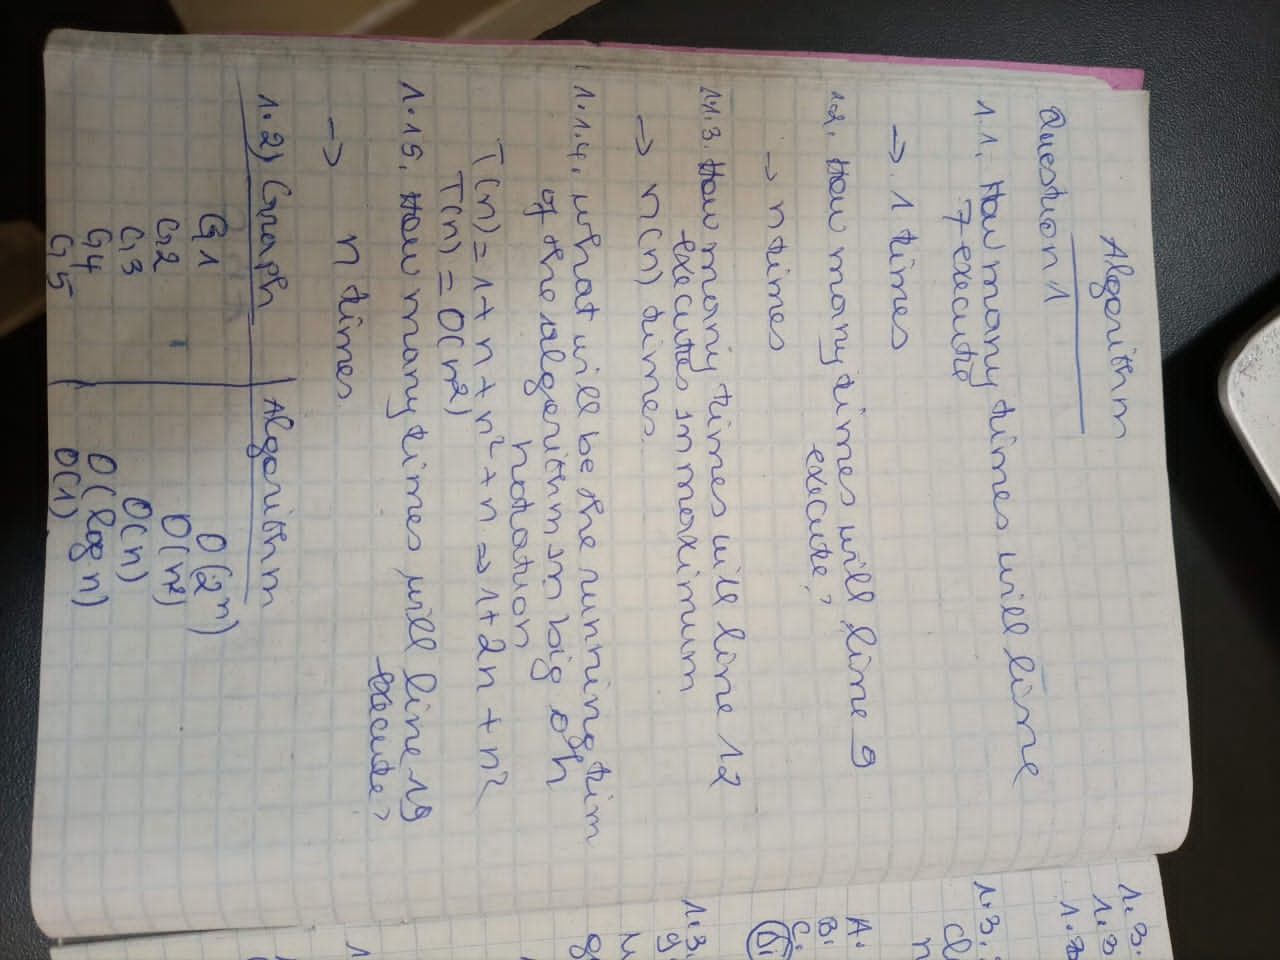 Algorithm
Question 1
1.1. How many times will line
7 execute
→ 1 times
1.2. How many times will line 9
execute?
→ n times
1.1.3. How many times will line 12
executes in maximum
→ n(n) times
1.1.4. what will be the running tim
of the algorithm in big oh
notation
T(n) = 1 + n + n² + n => 1 + 2n + n²
T(n) = O(n2)
1.15. How many times will line 19
execute?
→ n times
1.2) Graph | Algorithm
G1 O(2ⁿ)
G2 O(n²)
G3 O(n)
G4 O(log n)
G5 O(1)
1.3.
1.3
1.3
1.3.
cl
n
A.
B.
C.
1.3.
g